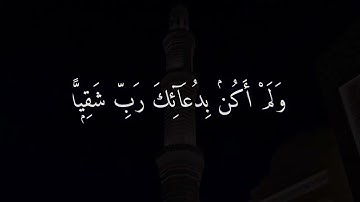 وَلَمْ أَكُنۢ بِدُعَآئِكَ رَبِّ شَقِيًّۭا